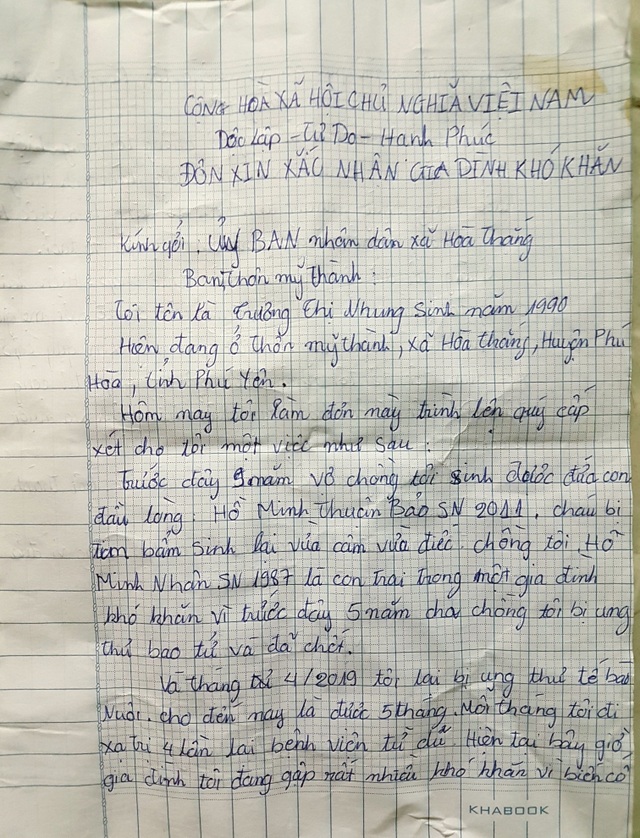 CỘNG HOÀ XÃ HỘI CHỦ NGHĨA VIỆT NAM
Dốc Lập - Tự Do - Hanh Phúc
ĐƠN XIN XẮC NHẬN GIA DINH KHÓ KHĂN
Kính gởi. ỦY BAN nhân dân xã Hoà Thắng
Ban Thôn mỹ thành:
Tôi tên là Trương Thị Nhung Sinh năm 1990
Hiên đang ở thôn mỹ thành, xã Hòa thắng, Huyện Phú
Hoà, tỉnh Phú Yên.
Hôm nay tôi làm đơn này trình lên quý cấp
xét cho tôi một viêc như sau:
Trước dây 9 năm vở chồng tôi sinh được đứa con
đầu lòng. Hồ Minh Thuân Bảo SN 2011. cháu bi
tim bẩm sinh lai vừa câm vừa điếc. chồng tôi Hồ
Minh Nhân SN 1987 là con trai trong một gia đình
khó khăn vì trước đây 5 năm cha chồng tôi bi ung
thư bao tử và đã chết.
Và tháng tư 4/2019 tôi lai bị ung thư tế bào
Nuôi. cho đến nay là được 5 tháng. Mỗi tháng tôi đi
xa tri 4 lần lai bệnh viên từ dũ. Hiên tai bây giờ
gia đình tôi đang gặp rất nhiều khó khăn vì biến cố
KHABOOK